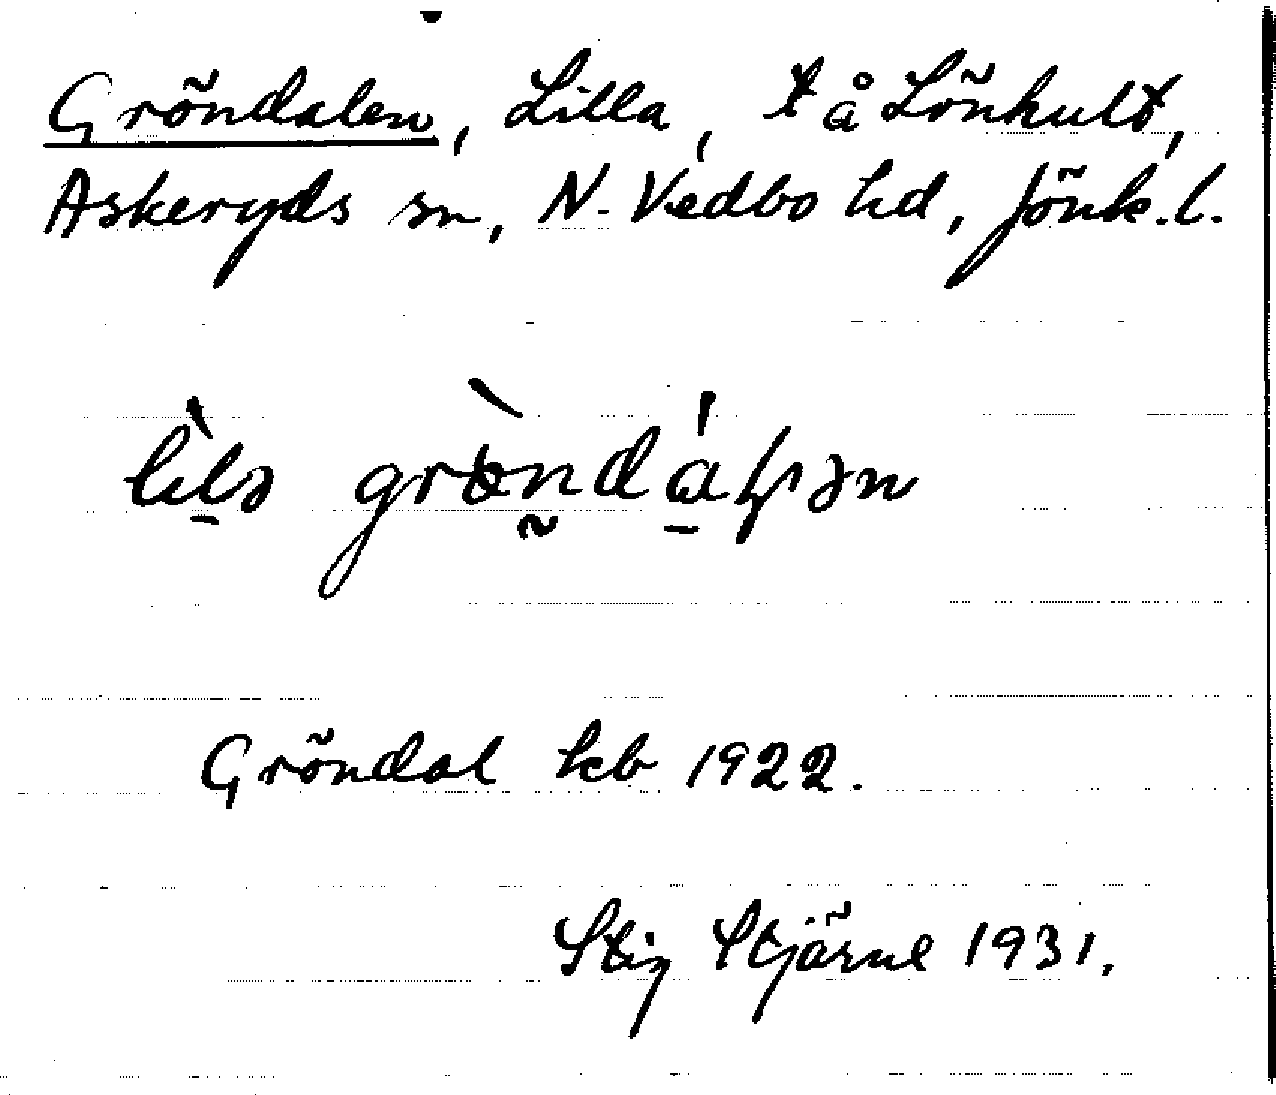 Gröndalen, Lilla, t å Lönhult,
Askeryds sn, N. Vedbo hd, Jönk.l.
lìlə grönd
Gröndal kb 1922.
Stig Stjärne 1931.